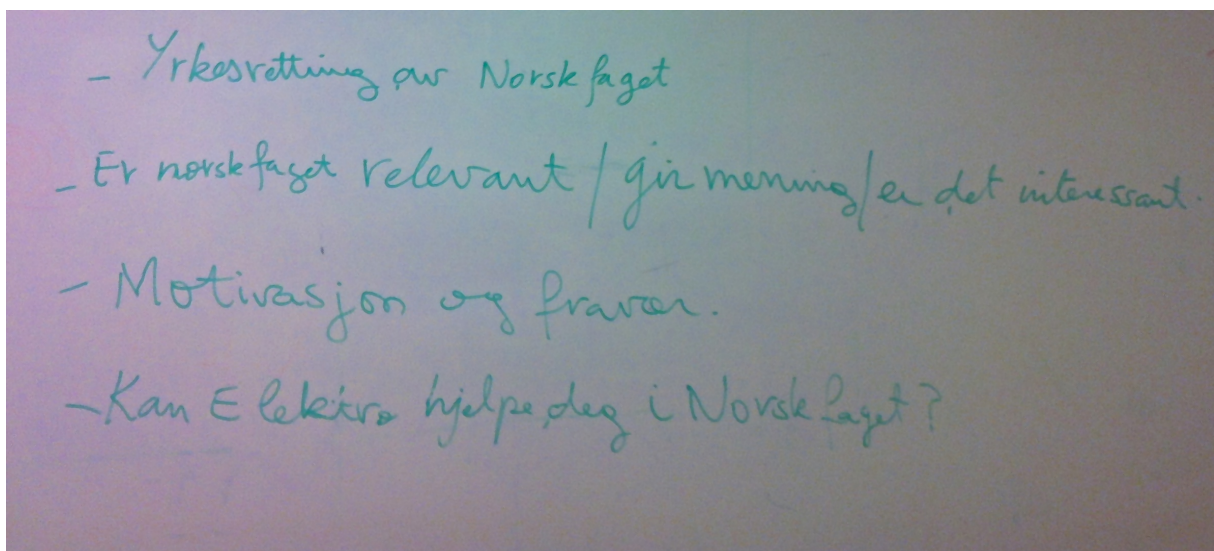 - Yrkesretting av Norskfaget
- Er norskfaget relevant / gir mening / er det interessant.
- Motivasjon og fravær.
- Kan Elektro hjelpe deg i Norskfaget?